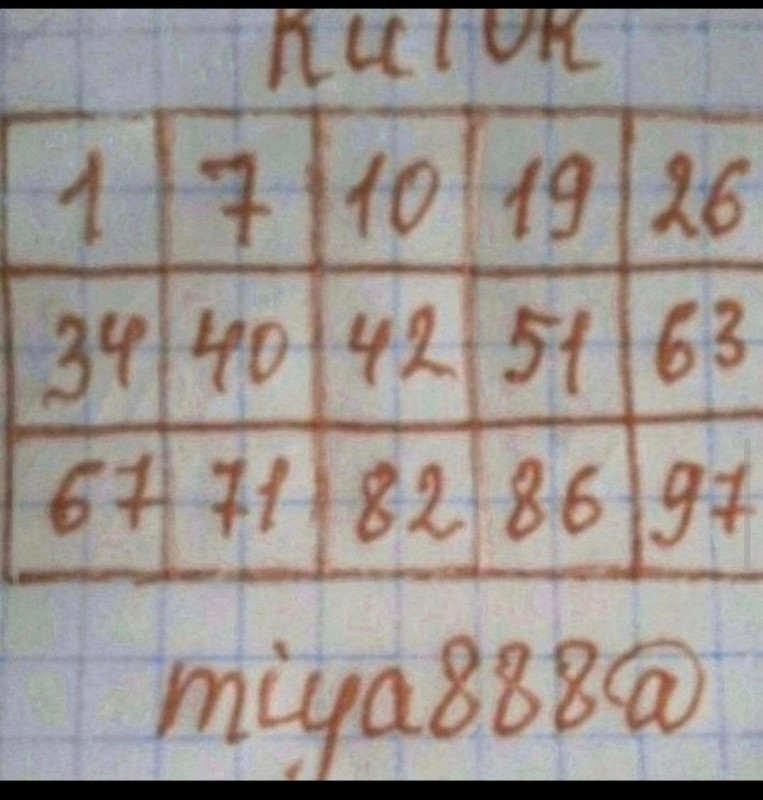 1 7 10 19 26
34 40 42 51 63
67 71 82 86 97
miya888@